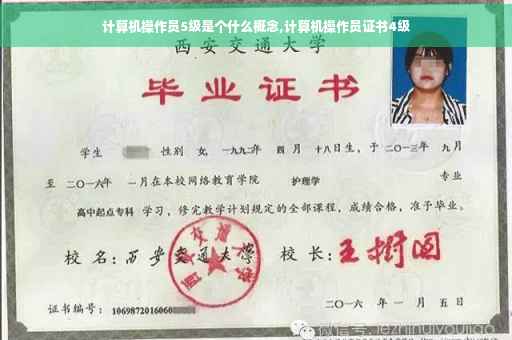 计算机操作员5级是个什么概念,计算机操作员证书4级
西安交通大学
毕业证书
学生 性别 女, 一九九二年 四 月 十八日生, 于 二〇一三年 九月
至 二〇一六年 一月在本校网络教育学院 护理学 专业
高中起点专科 学习, 修完教学计划规定的全部课程, 成绩合格, 准予毕业。
校 名: 西安交通大学 校 长: 王树国
西安交通大学
证书编号: 1069872016060
二〇一六 年 一 月 五 日
微信号: jezhinuivoujiao